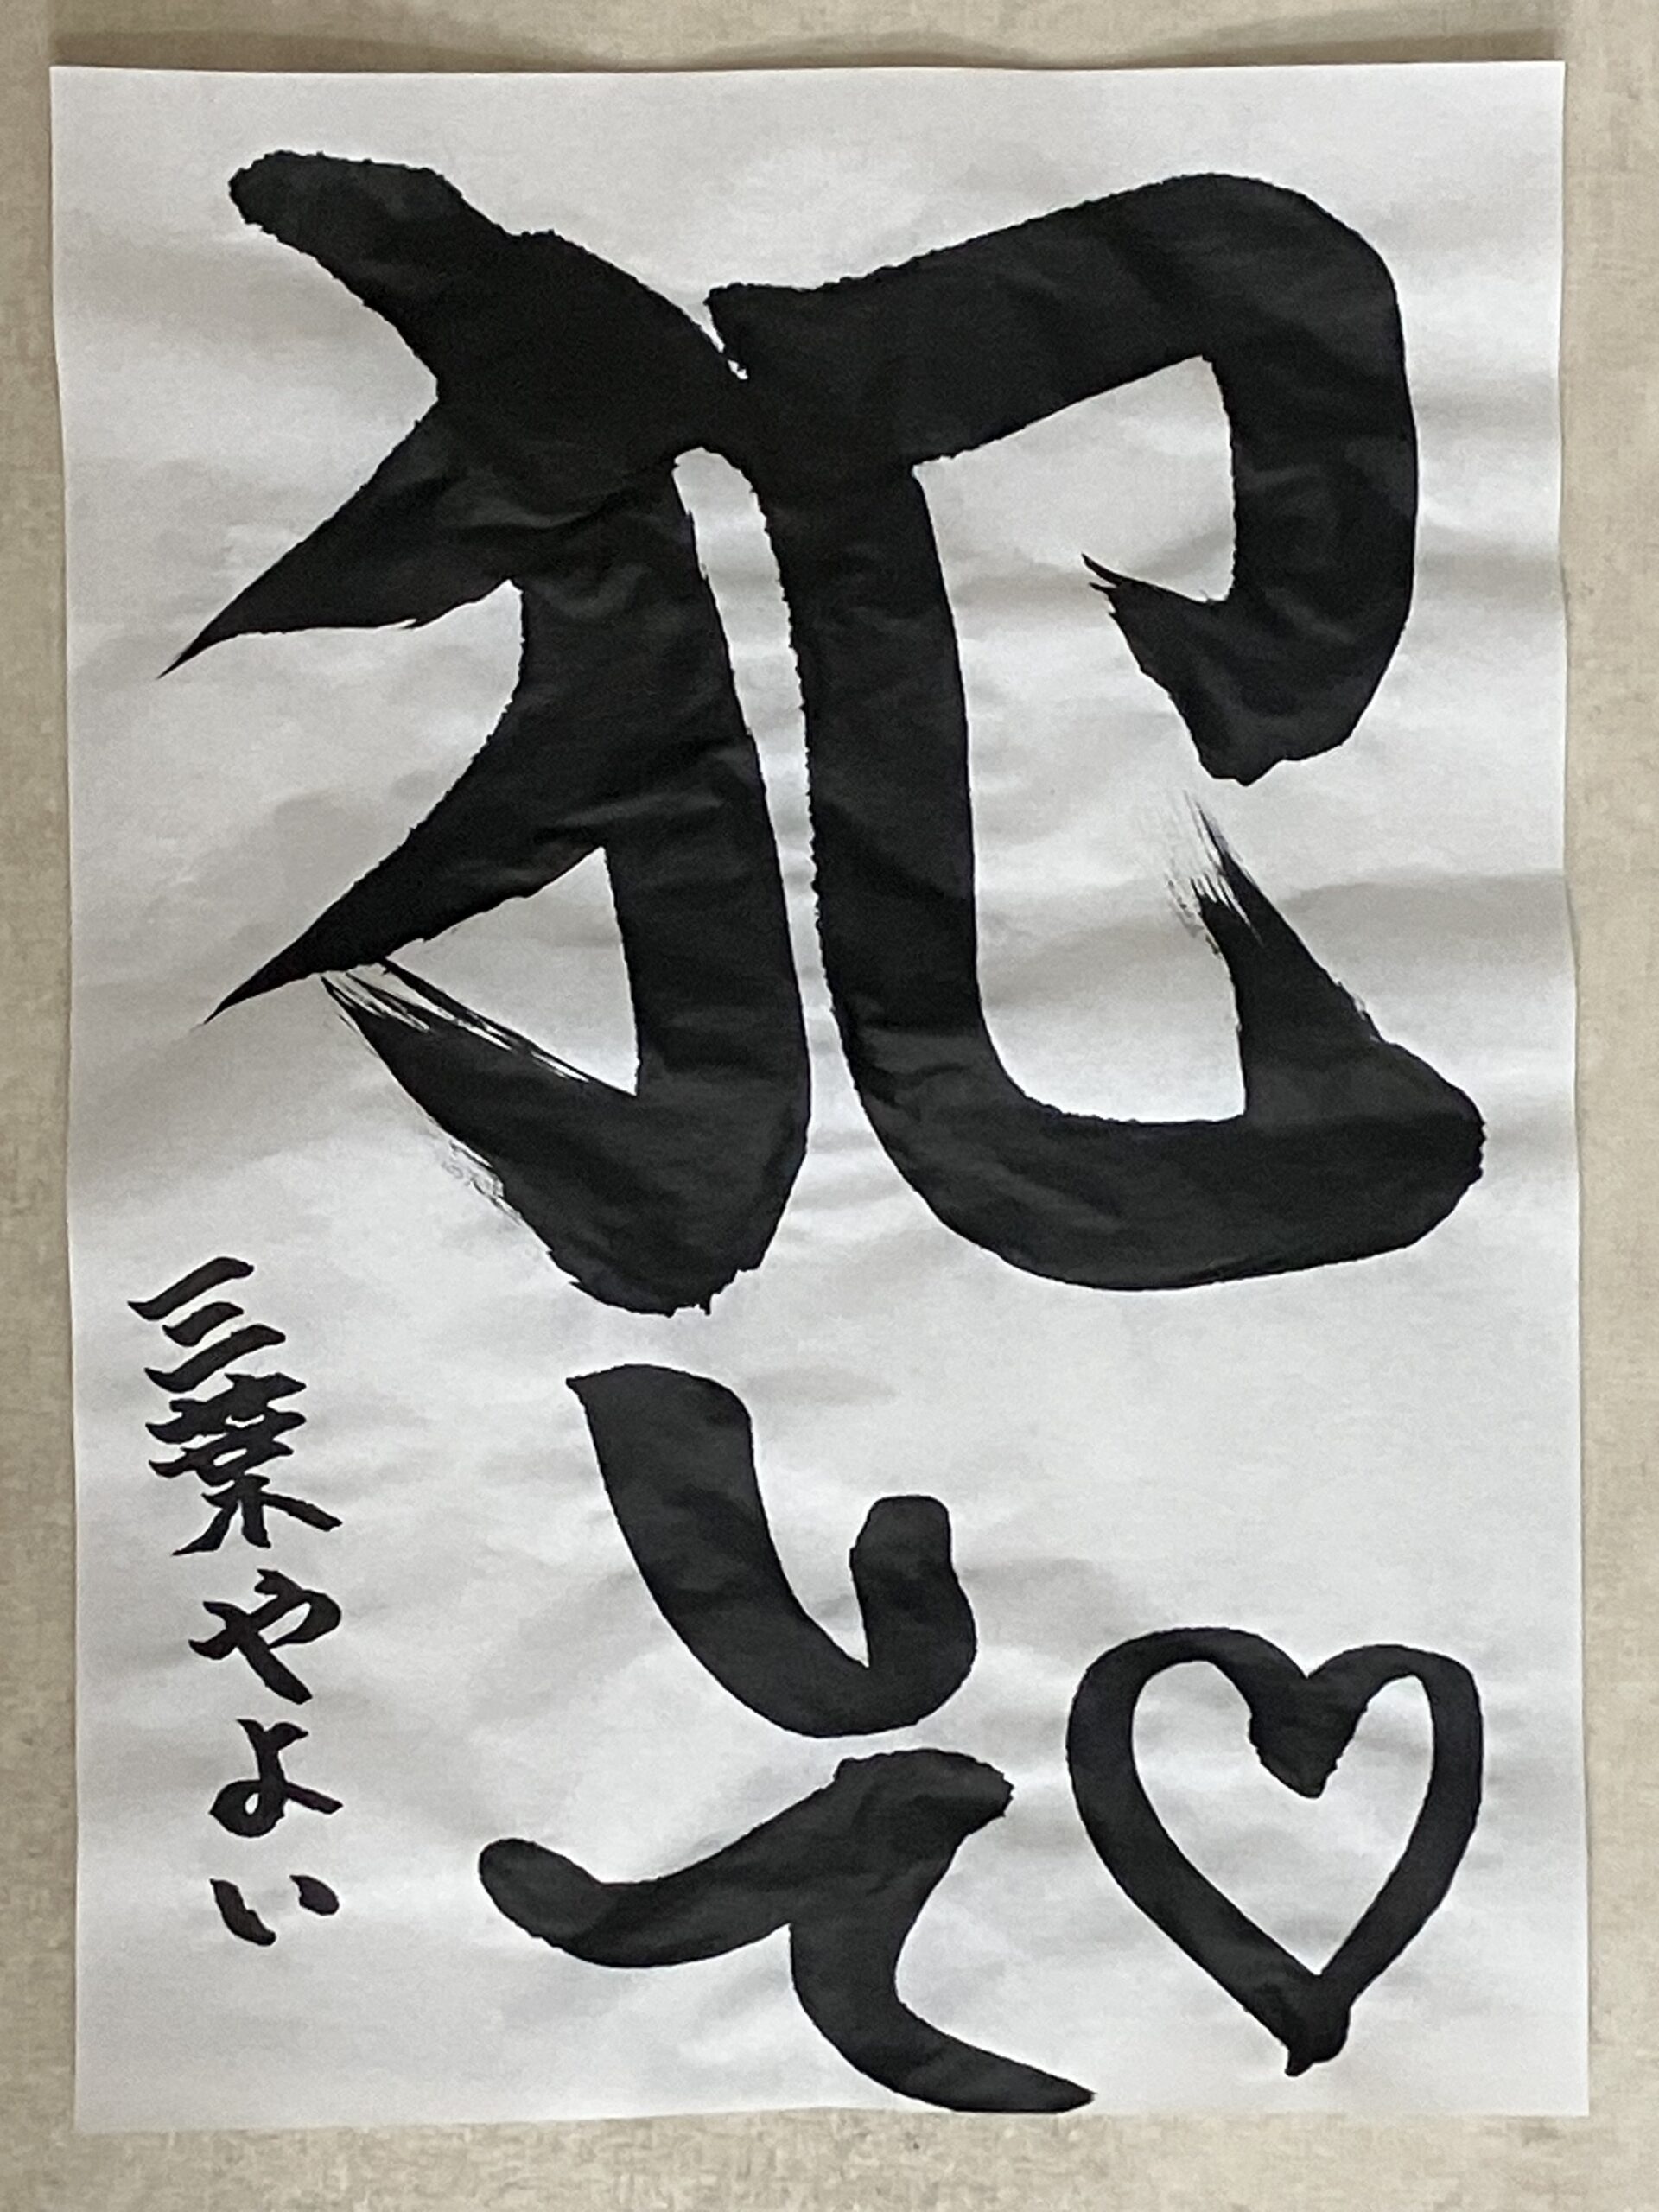 犯して♡
三葉やよい